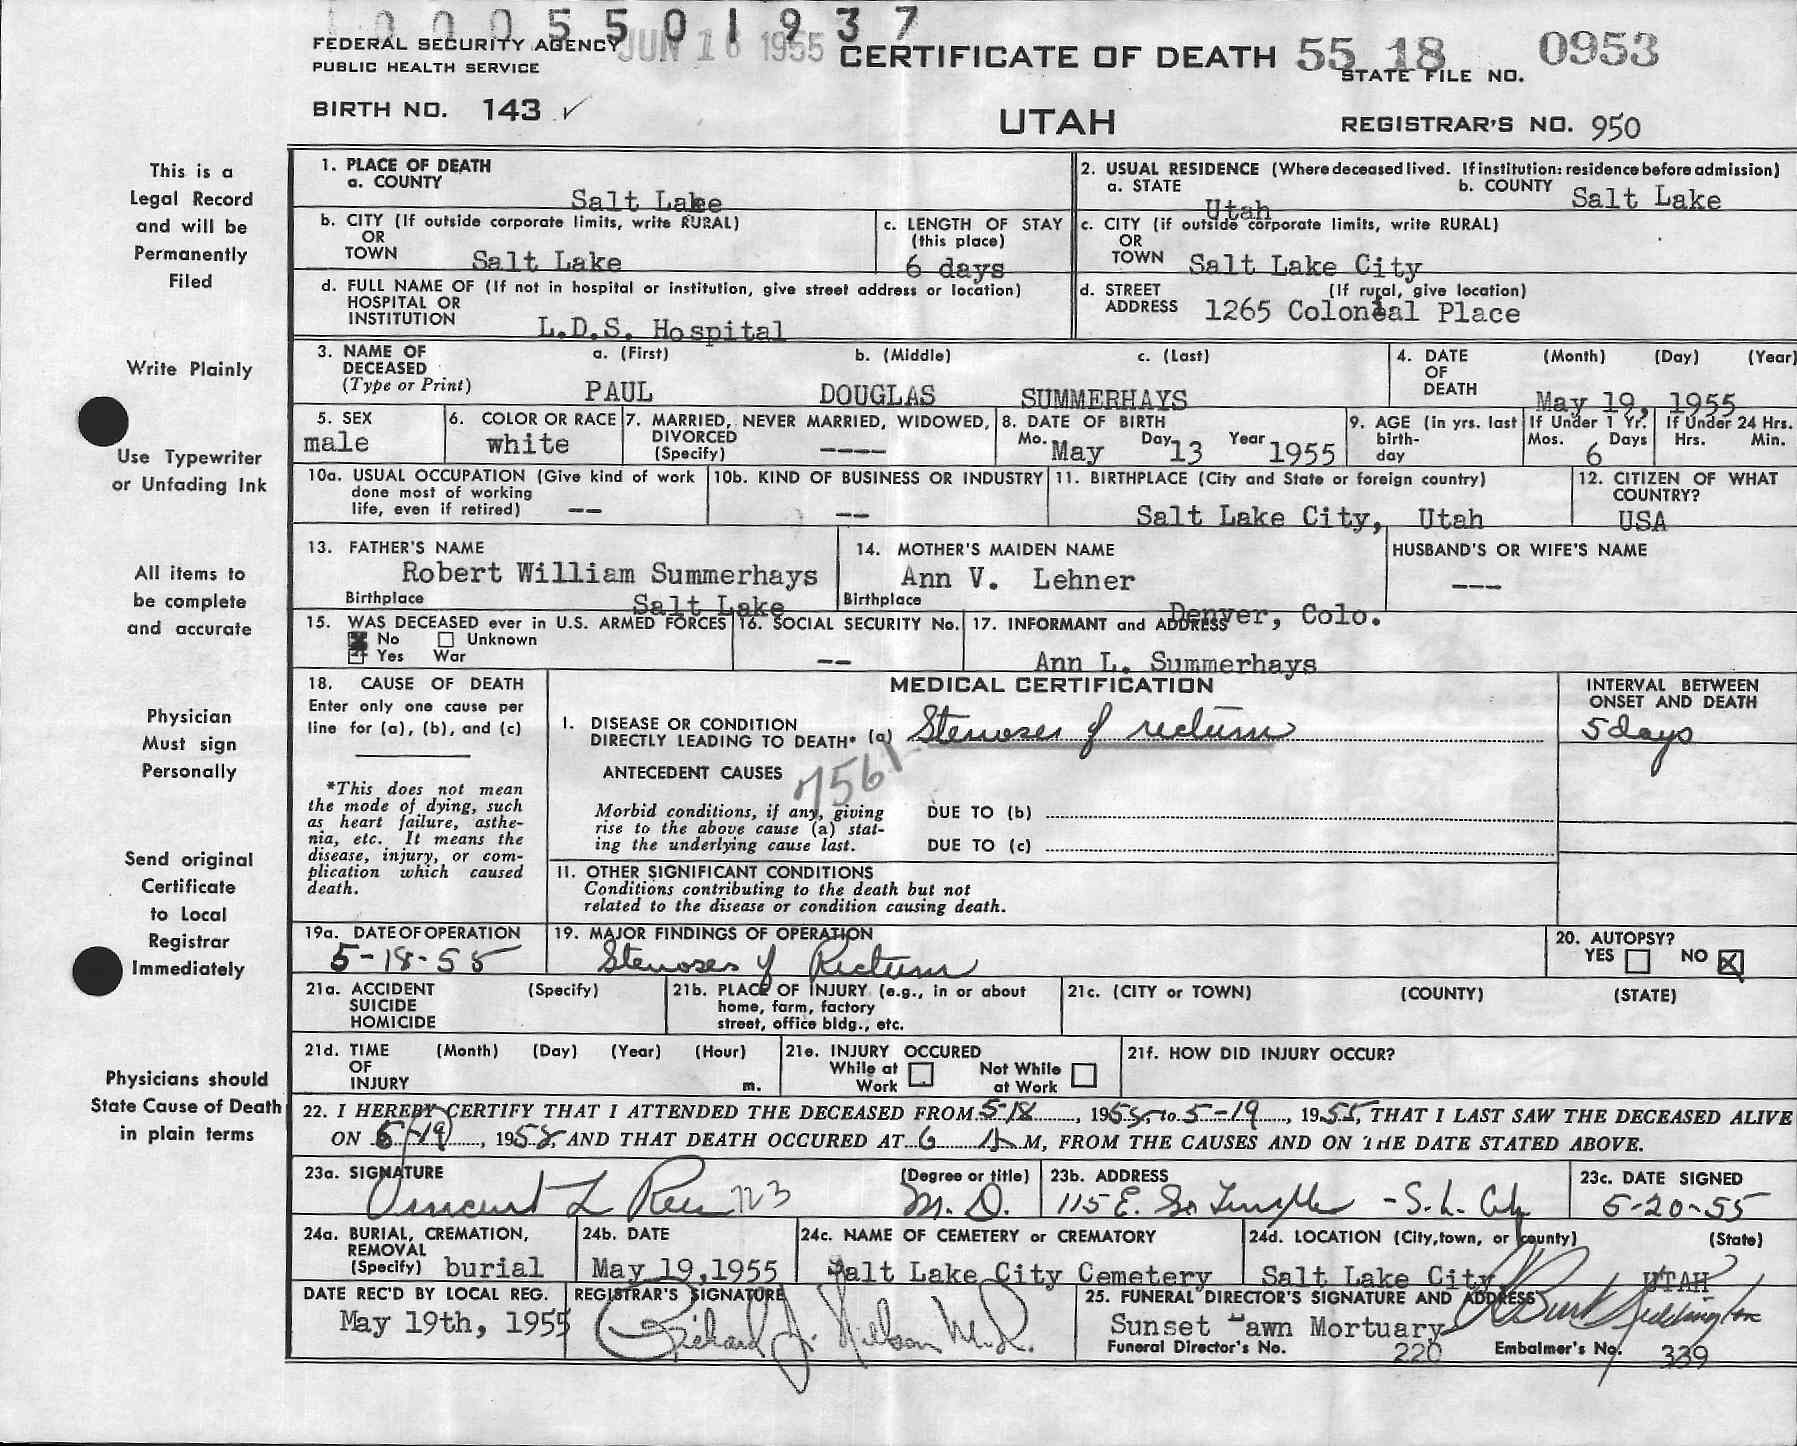 1 0 0 0 5 5 0 1 9 3 7
FEDERAL SECURITY AGENCY JUN 16 1955 CERTIFICATE OF DEATH 55 18 0953
PUBLIC HEALTH SERVICE STATE FILE NO.
BIRTH NO. 143 ✓
UTAH REGISTRAR'S NO. 950
This is a
Legal Record
and will be
Permanently
Filed
Write Plainly
Use Typewriter
or Unfading Ink
All items to
be complete
and accurate
Physician
Must sign
Personally
Send original
Certificate
to Local
Registrar
Immediately
Physicians should
State Cause of Death
in plain terms
1. PLACE OF DEATH
a. COUNTY
Salt Lake
2. USUAL RESIDENCE (Where deceased lived. If institution: residence before admission)
a. STATE Utah b. COUNTY Salt Lake
b. CITY (If outside corporate limits, write RURAL)
OR
TOWN Salt Lake
c. LENGTH OF STAY
(this place)
6 days
c. CITY (if outside corporate limits, write RURAL)
OR
TOWN Salt Lake City
d. FULL NAME OF (If not in hospital or institution, give street address or location)
HOSPITAL OR
INSTITUTION L.D.S. Hospital
d. STREET (If rural, give location)
ADDRESS 1265 Colonial Place
3. NAME OF a. (First) b. (Middle) c. (Last)
DECEASED
(Type or Print) PAUL DOUGLAS SUMMERHAYS
4. DATE (Month) (Day) (Year)
OF
DEATH May 19, 1955
5. SEX
male
6. COLOR OR RACE
white
7. MARRIED, NEVER MARRIED, WIDOWED,
DIVORCED
(Specify) ----
8. DATE OF BIRTH
Mo. May Day 13 Year 1955
9. AGE (in yrs. last
birth-
day
If Under 1 Yr.
Mos. Days
6
If Under 24 Hrs.
Hrs. Min.
10a. USUAL OCCUPATION (Give kind of work
done most of working
life, even if retired) --
10b. KIND OF BUSINESS OR INDUSTRY
--
11. BIRTHPLACE (City and State or foreign country)
Salt Lake City, Utah
12. CITIZEN OF WHAT
COUNTRY?
USA
13. FATHER'S NAME
Robert William Summerhays
Birthplace Salt Lake
14. MOTHER'S MAIDEN NAME
Ann V. Lehner
Birthplace Denver, Colo.
HUSBAND'S OR WIFE'S NAME
---
15. WAS DECEASED ever in U.S. ARMED FORCES
No Unknown
Yes War
16. SOCIAL SECURITY No.
--
17. INFORMANT and ADDRESS
Ann L. Summerhays
18. CAUSE OF DEATH
Enter only one cause per
line for (a), (b), and (c)
*This does not mean
the mode of dying, such
as heart failure, asthe-
nia, etc. It means the
disease, injury, or com-
plication which caused
death.
MEDICAL CERTIFICATION
INTERVAL BETWEEN
ONSET AND DEATH
I. DISEASE OR CONDITION
DIRECTLY LEADING TO DEATH* (a) Stenoses of rectum 5 days
ANTECEDENT CAUSES 7561
Morbid conditions, if any, giving
rise to the above cause (a) stat-
ing the underlying cause last.
DUE TO (b)
DUE TO (c)
11. OTHER SIGNIFICANT CONDITIONS
Conditions contributing to the death but not
related to the disease or condition causing death.
19a. DATE OF OPERATION
5-18-55
19. MAJOR FINDINGS OF OPERATION
Stenoses of Rectum
20. AUTOPSY?
YES NO X
21a. ACCIDENT (Specify)
SUICIDE
HOMICIDE
21b. PLACE OF INJURY (e.g., in or about
home, farm, factory
street, office bldg., etc.
21c. (CITY or TOWN) (COUNTY) (STATE)
21d. TIME (Month) (Day) (Year) (Hour)
OF
INJURY m.
21e. INJURY OCCURED
While at Not While
Work at Work
21f. HOW DID INJURY OCCUR?
22. I HEREBY CERTIFY THAT I ATTENDED THE DECEASED FROM 5-18, 1955, to 5-19, 1955, THAT I LAST SAW THE DECEASED ALIVE
ON 5-19, 1955, AND THAT DEATH OCCURED AT 6 A M, FROM THE CAUSES AND ON THE DATE STATED ABOVE.
23a. SIGNATURE (Degree or title)
Vincent L Rees 723 M.D.
23b. ADDRESS
115 E. So Temple - S. L. City
23c. DATE SIGNED
5-20-55
24a. BURIAL, CREMATION,
REMOVAL
(Specify) burial
24b. DATE
May 19,1955
24c. NAME OF CEMETERY or CREMATORY
Salt Lake City Cemetery
24d. LOCATION (City, town, or county) (State)
Salt Lake City UTAH
DATE REC'D BY LOCAL REG.
May 19th, 1955
REGISTRAR'S SIGNATURE
Richard J. Nelson M.D.
25. FUNERAL DIRECTOR'S SIGNATURE AND ADDRESS
Sunset Lawn Mortuary
Funeral Director's No. 220 Embalmer's No. 339